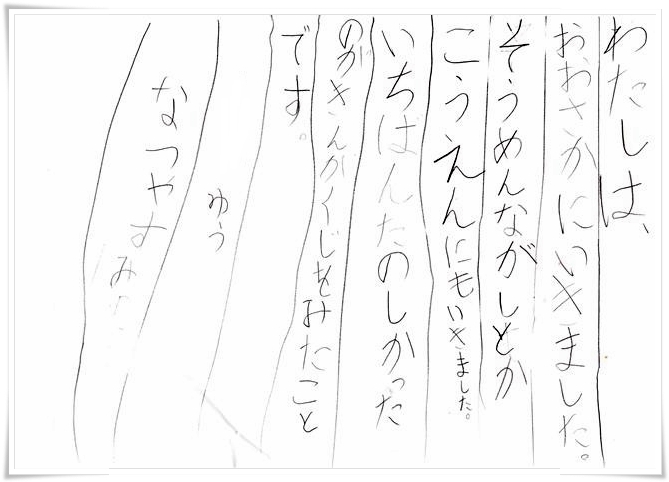 わたしは、
おおさかにいきました。
そうめんながしとか
こうえんにもいきました。
いちばんたのしかった
のがきんかくじをみたこと
です。
ゆう
なつやすみ